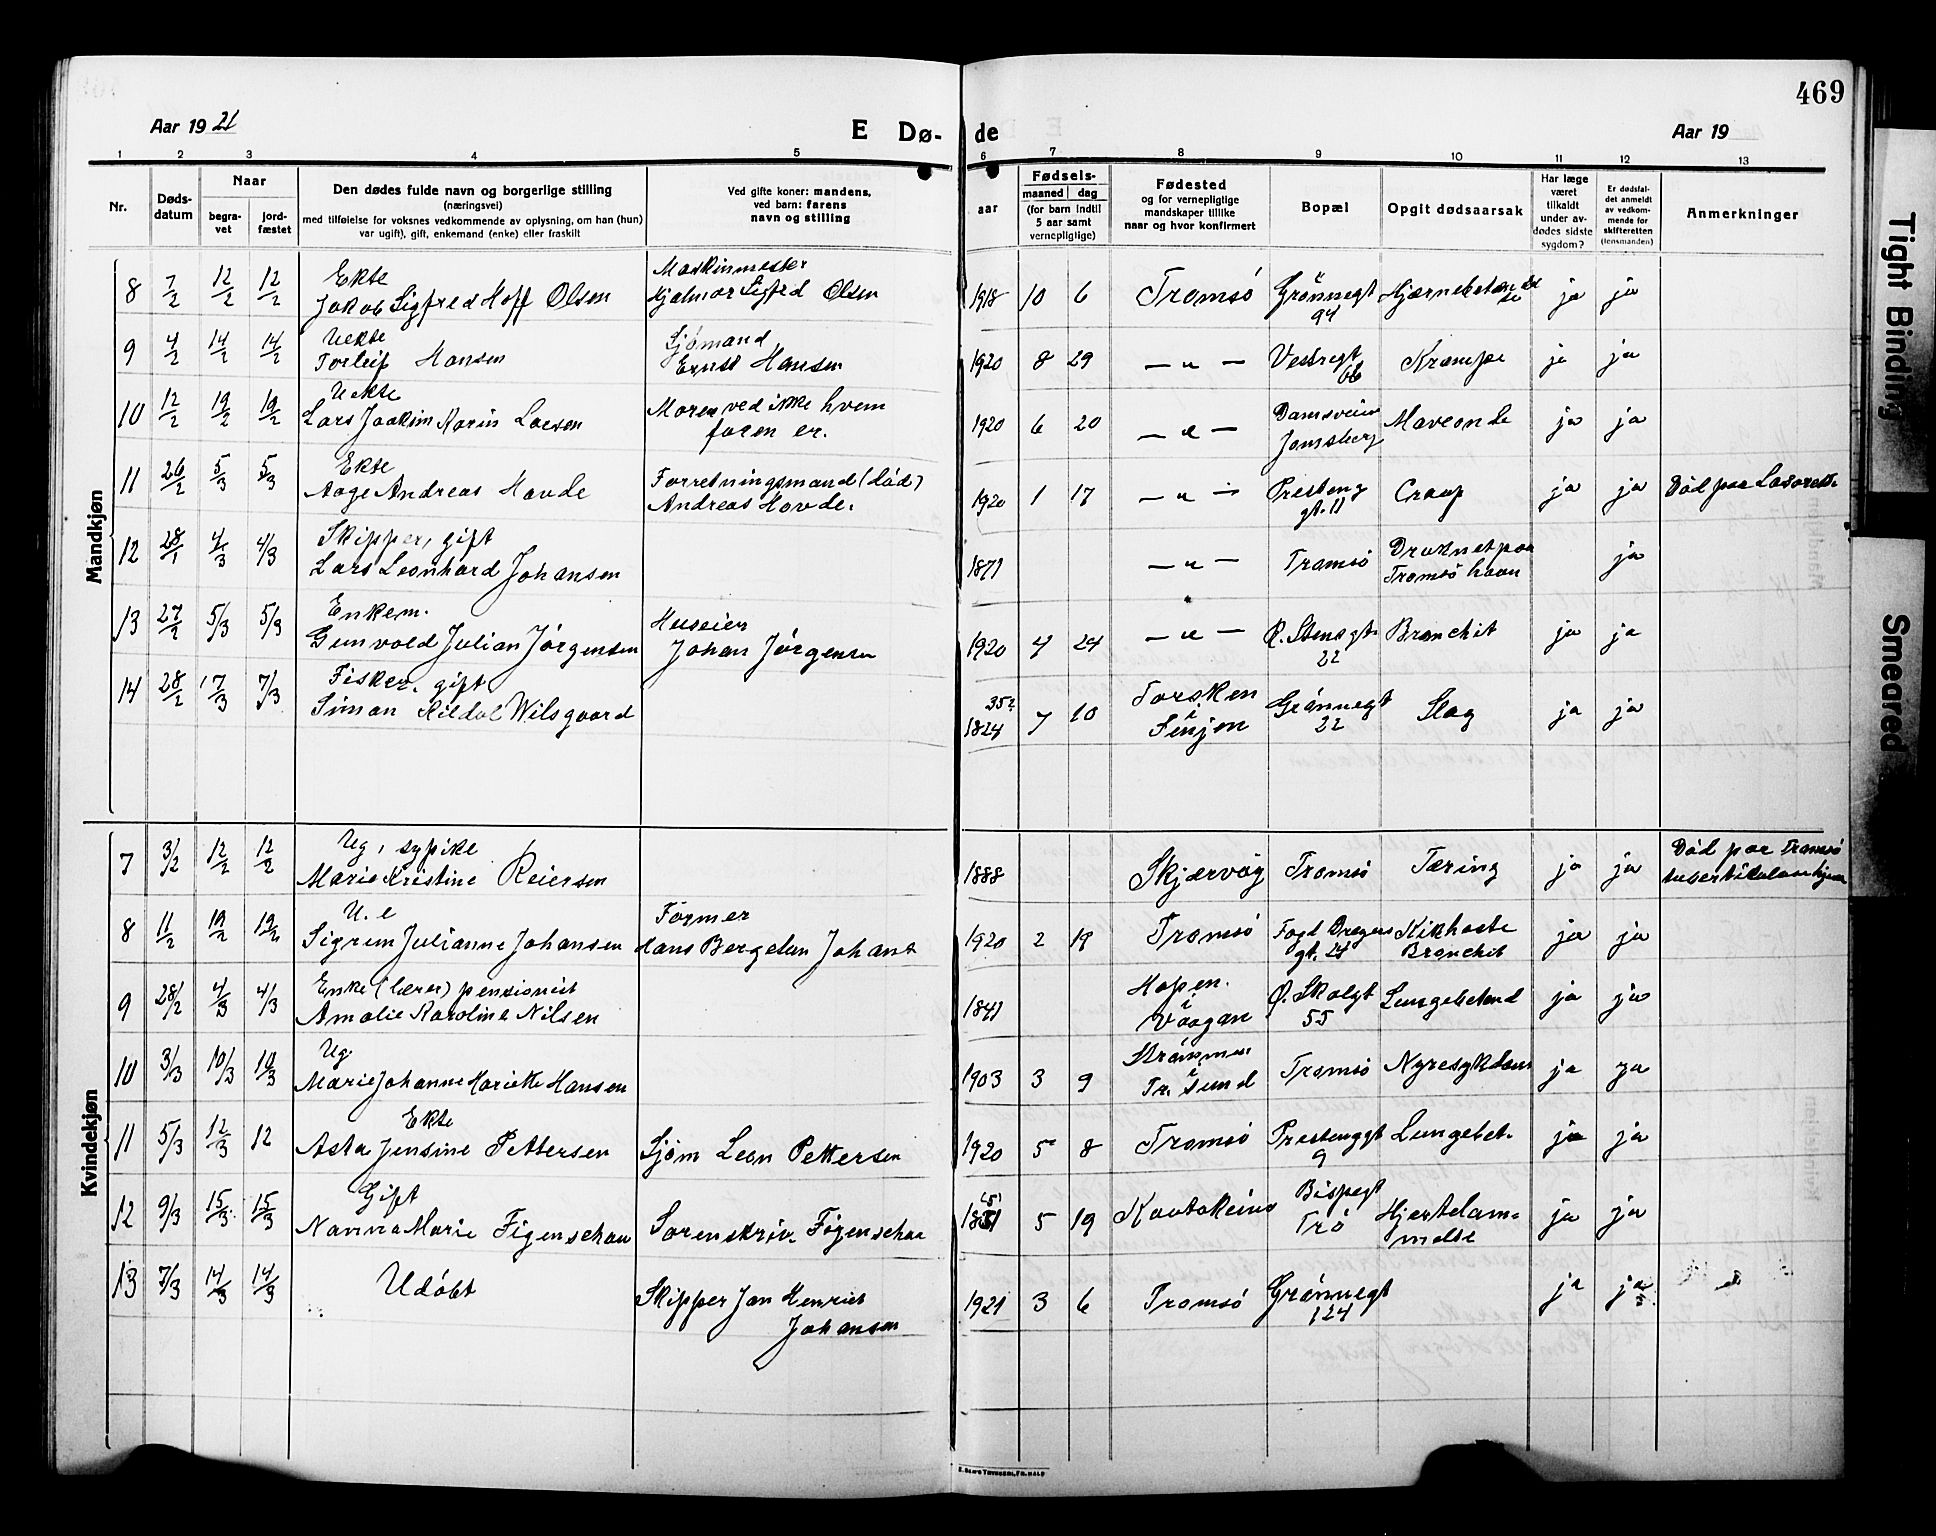 469
Aar 19 21
E Dø-
de
Aar 19
1 2 3 4 5 6 7 8 9 10 11 12 13
Nr.
Døds-
datum
Naar
begra-
vet
jord-
fæstet
Den dødes fulde navn og borgerlige stilling
(næringsvei)
med tilføielse for voksnes vedkommende av oplysning, om han (hun)
var ugift), gift, enkemand (enke) eller fraskilt
Ved gifte koner: mandens,
ved barn: farens
navn og stilling
Fødsels-
aar
maaned dag
(for barn indtil
5 aar samt
vernepligtige)
Fødested
og for vernepligtige
mandskaper tillike
naar og hvor konfirmert
Bopæl
Opgit dødsaarsak
Har læge
været
tilkaldt
under av-
dødes sidste
sygdom?
Er dødsfal-
det anmeldt
av vedkom-
mende for
skifteretten
(lensmanden)
Anmerkninger
Mandkjøn
Ekte Maskinmester
8 7/2 12/2 12/2 Jakob Sigfred Hoff Olsen Hjalmar Sigfrd Olsen 1918 10 6 Tromsö Grönnegt 94 ja ja
Uekte Sjømand
9 4/2 14/2 14/2 Torleif Hansen Ernst Hansen 1920 8 29 — " — Vestregt 66 Krampe ja ja
Uekte
10 12/2 19/2 19/2 Lars Joakim Marin Larsen Moren ved ikke hvem
faren er. 1920 6 20 — " — Maveonde ja ja
Ekte
11 26/2 5/3 5/3 Aage Andreas Hovde Forretningsmand (död)
Andreas Hovde. 1920 1 17 — " — Presteng
gt. 11 Croup ja ja Död paa Lasarett.
Skipper, gift
12 28/1 4/3 4/3 Lars Leonhard Johansen 1871 — " — Tromsö Druknet paa
Tromsö havn ja
Enkem.
13 27/2 5/3 5/3 Gunvold Julian Jörgensen Huseier
Johan Jörgensen 1920 4 24 — " — Ö. Stensgt.
22 Bronchit ja ja
Fisker, gift
14 28/2 7/3 7/3 Simon Kildal Wilsgaard 352
1824 7 10 Torsken
i
Senjen Grönnegt
22 Slag ja ja
Kvindekjøn
Ug, sypike
7 3/2 12/2 12/2 Marie Kristine Reiersen 1888 Skjærvöy Tromsö Tæring ja ja Död paa Tromsö
U. e Former
8 11/2 19/2 19/2 Sigrun Julianne Johansen Hans Bergeton Johans 1920 2 19 Tromsö Fogd Dreyers
gt. 21 Kikhoste
Bronchit ja ja
Enke (lærer) pensionist
9 28/2 4/3 4/3 Amalie Karoline Nilsen 1841 Hopen
i
Vaagan Ö. Skolgt
55 Lungebetend ja ja
Ug.
10 3/3 10/3 10/3 Marie Johanne Mariette Hansen 1903 3 9 Strömmen
i
Tr. sund Tromsö Nyresykdom ja ja
Ekte
11 5/3 12/3 12 Asta Jensine Pettersen Sjöm Leon Pettersen 1920 5 8 Tromsö Prestenggt
9 Lungebet. ja ja
Gift
12 9/3 15/3 15/3 Nanna Marie Figenschau Sorenskriv. Figenschau 5 19 Kautokeino Bispegt
Trö Hjertelam-
melse ja ja
13 7/3 14/3 14/3 Udöbt Skipper Jan Henrist
Johansen 1921 3 6 Tromsö Grönnegt
124 ja ja
Tight Binding
Smeared